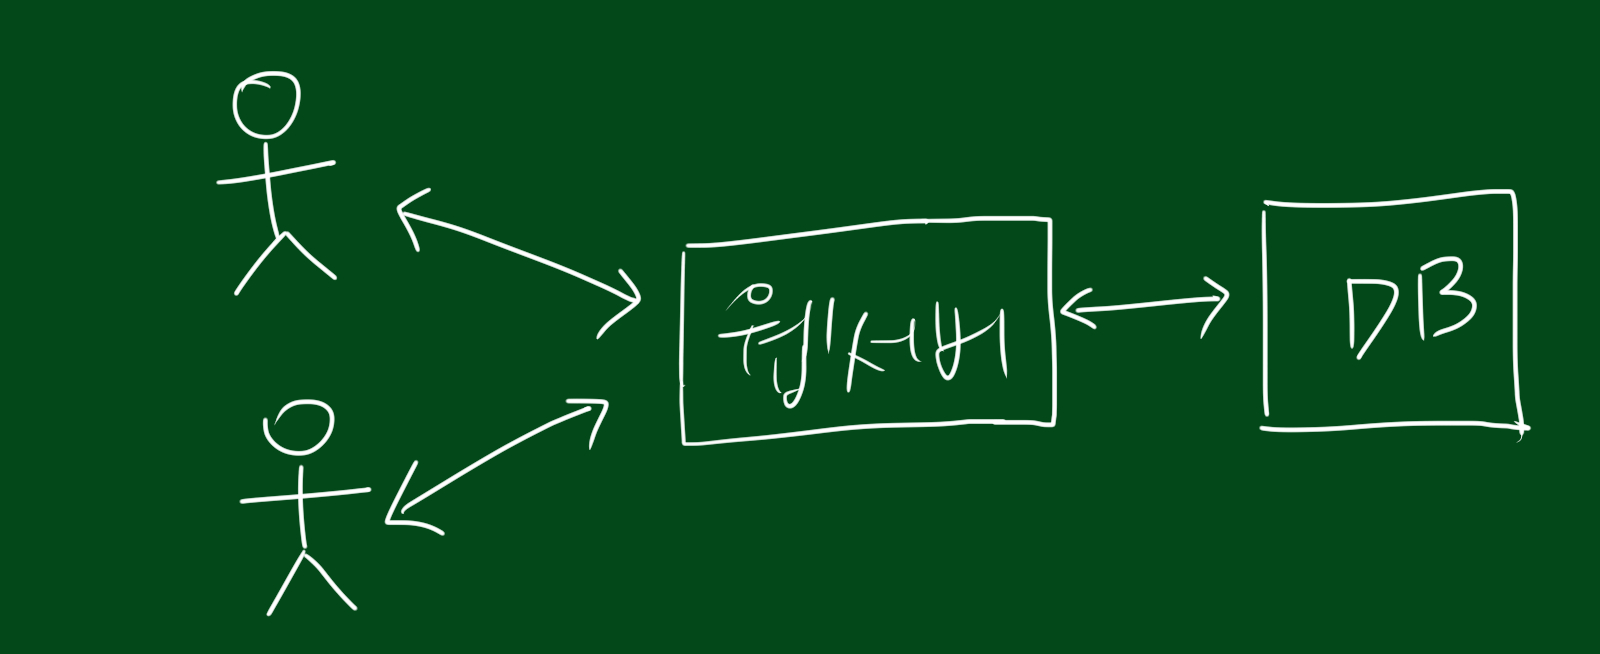 웹서버
DB